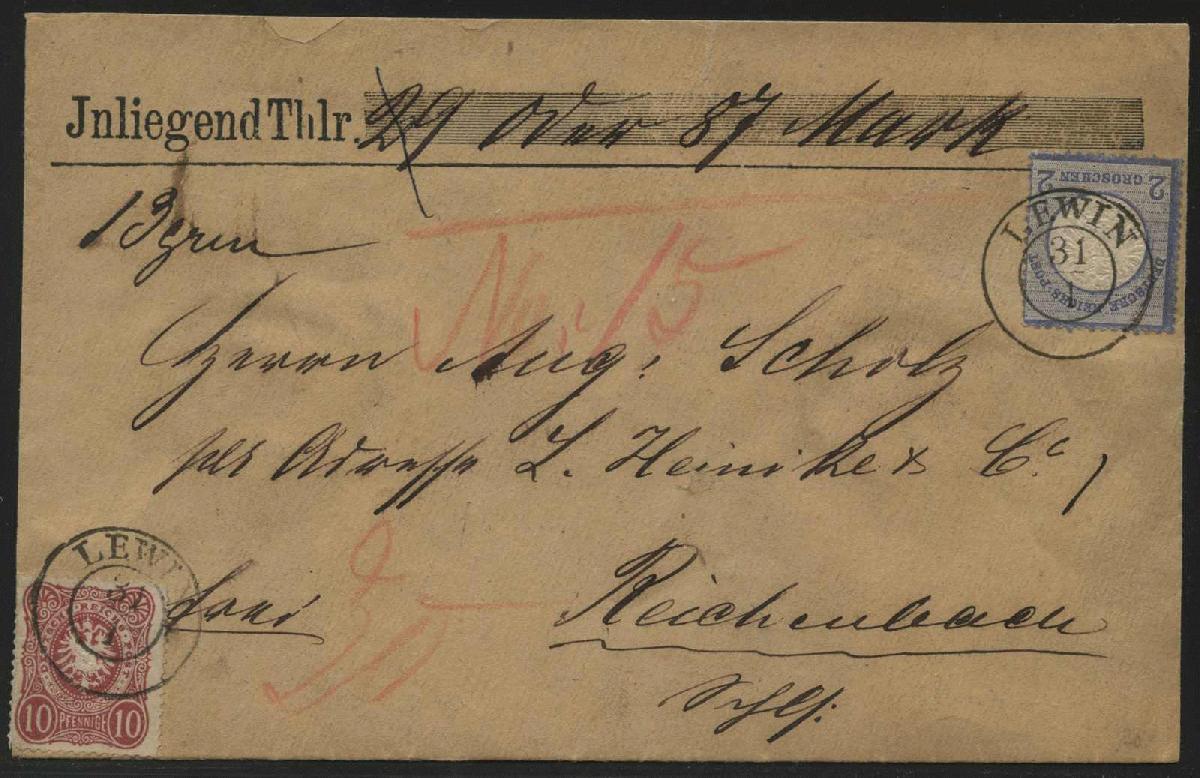 Jnliegend Thlr. 29 oder 87 Mark
2 GROSCHEN 2
DEUTSCHE REICHS-POST
LEWIN
31
1
13 grm
No: 15
Herrn Aug: Scholz
per Adresse L. Heinike & Co,
LEWIN
31
1
frei
Reichenbach
Schls.
10 PFENNIGE 10